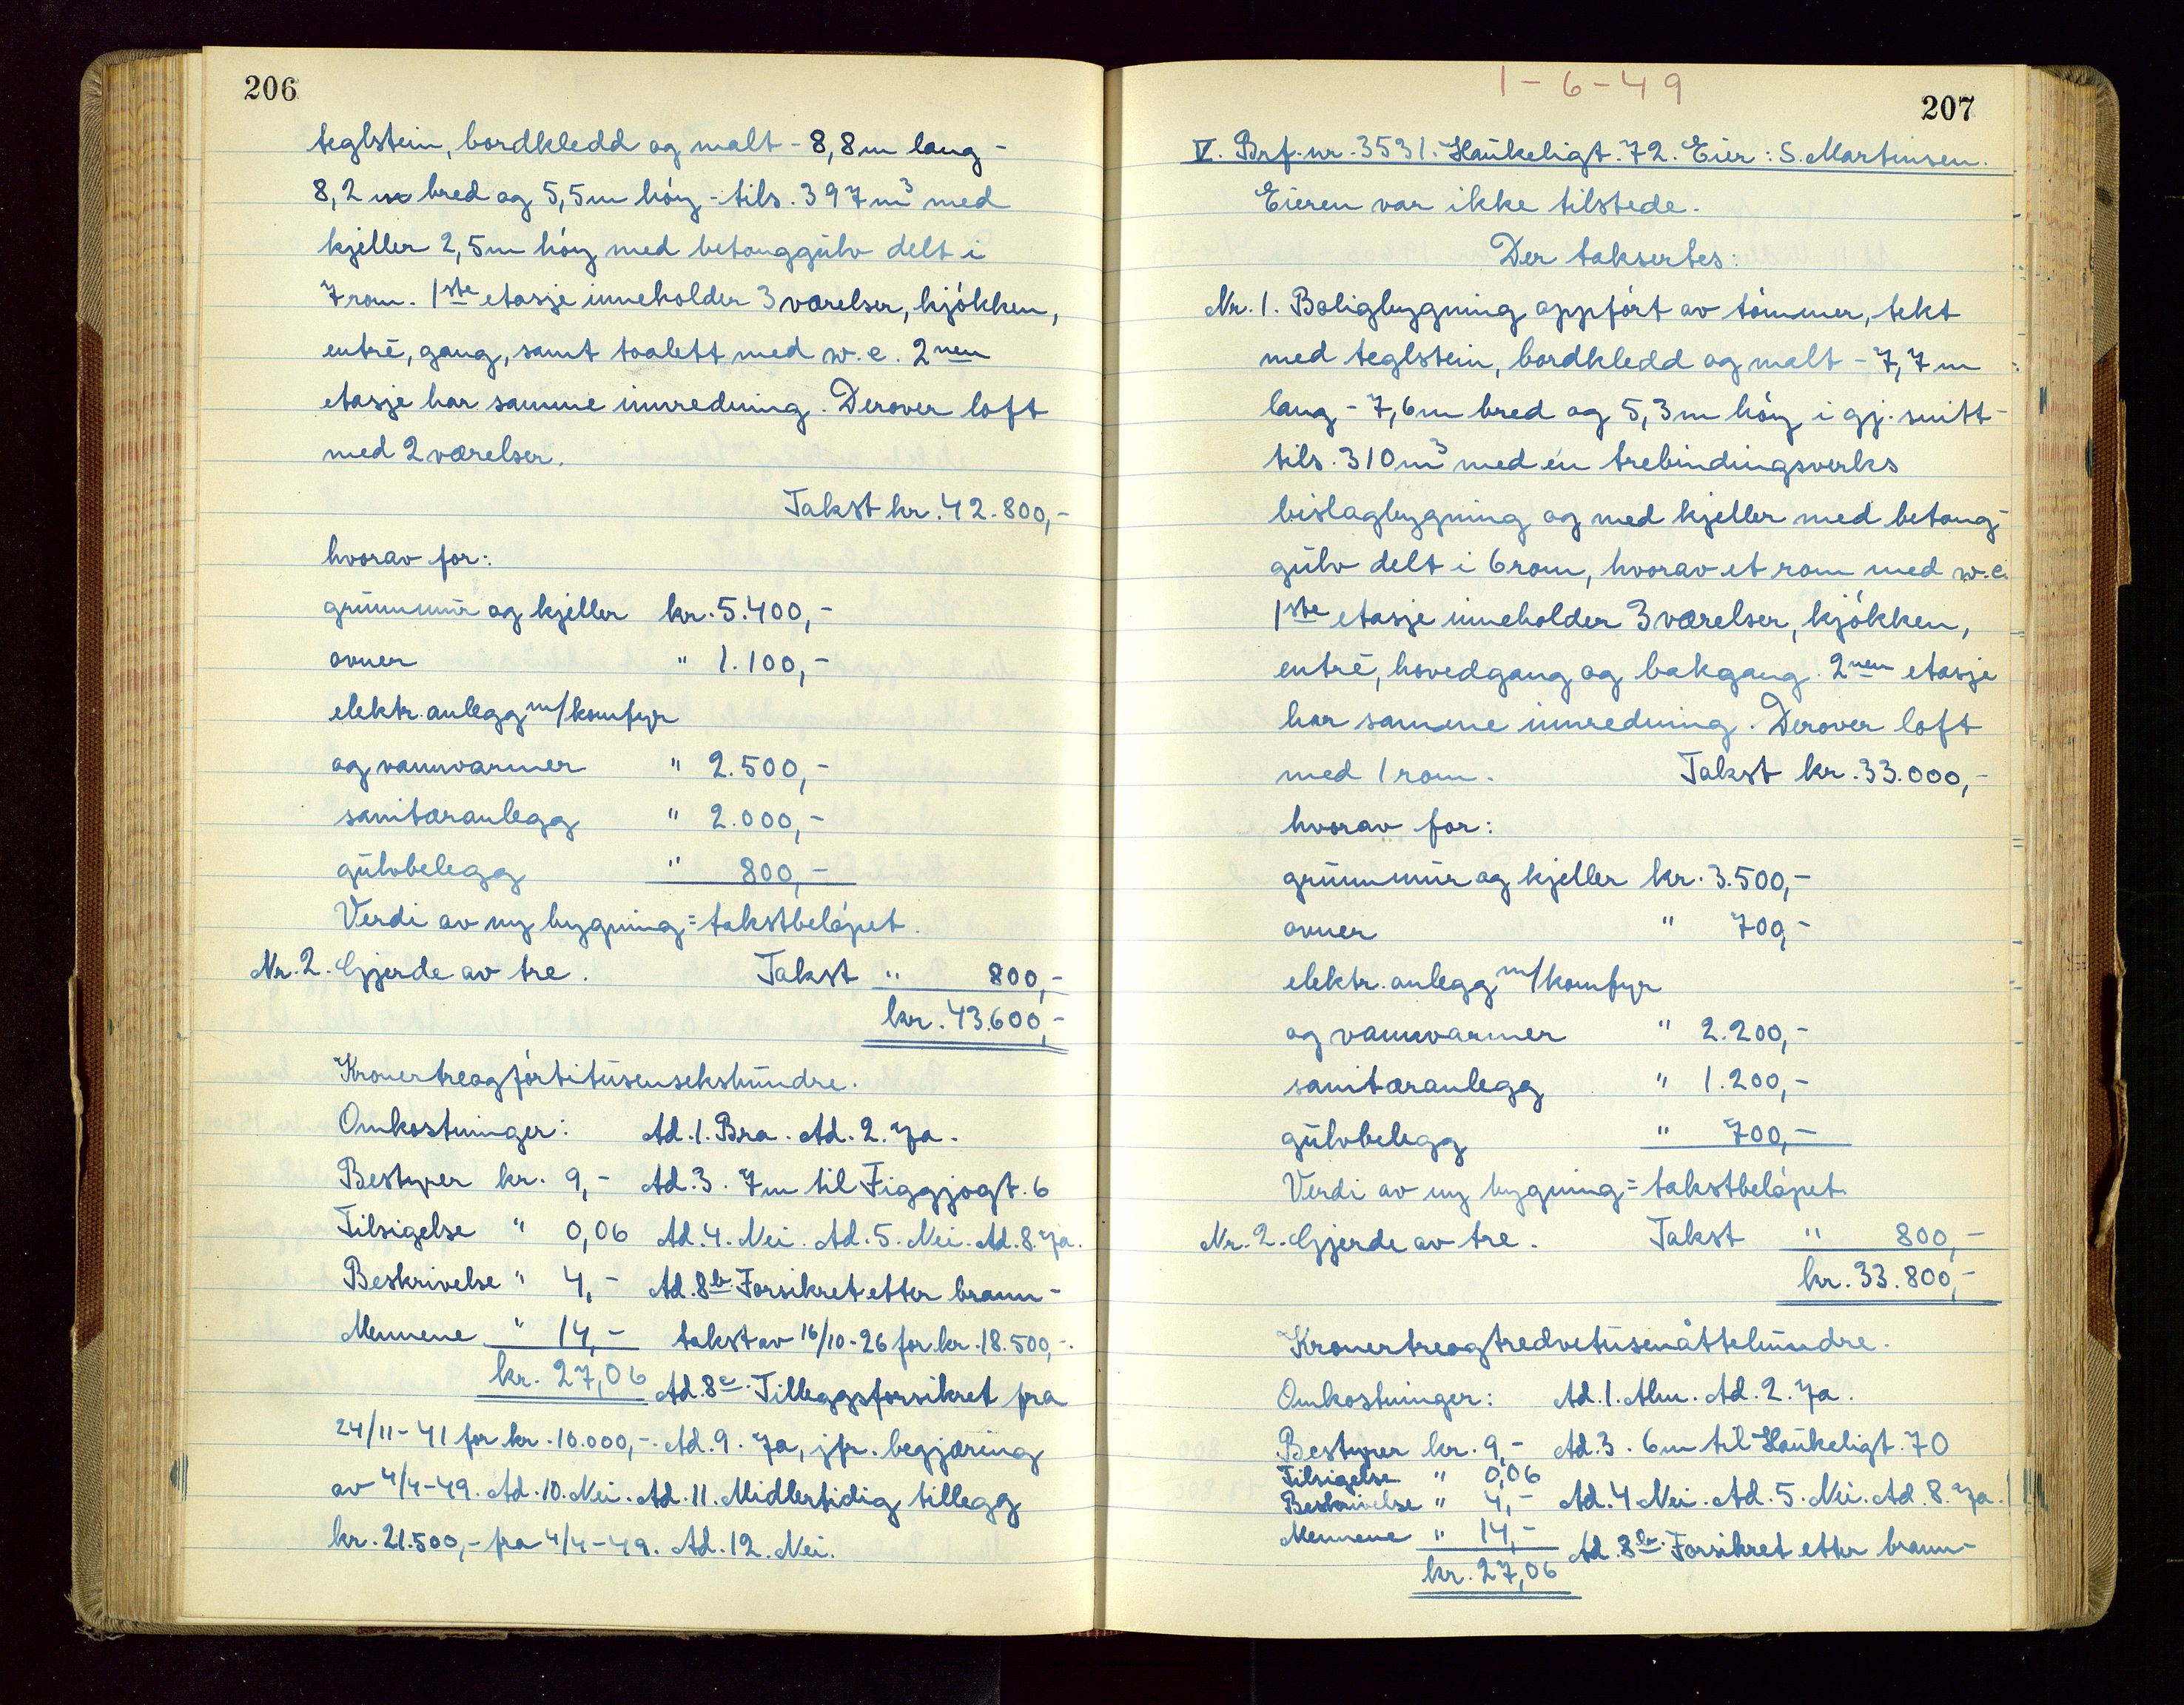 206
teglstein, bordkledd og malt - 8,8m lang -
8,2 m bred og 5,5m høy - tils. 397 m³ med
kjeller 2,5m høy med betonggulv delt i
7 rom. 1ste etasje inneholder 3 værelser, kjøkken,
entré, gang, samt toalett med w.c. 2nen
etasje har samme innredning. Derover loft
med 2 værelser.
Takst kr. 42.800,-
hvorav for:
grunnmur og kjeller kr. 5.400,-
ovner " 1.100,-
elektr. anlegg m/komfyr
og vannvarmer " 2.500,-
sanitæranlegg " 2.000,-
gulvbelegg " 800,-
Verdi av ny bygning = takstbeløpet.
Nr. 2. Gjerde av tre. Takst " 800,-
kr. 43.600,-
Kronertreogførtitusensekshundre.
Omkostninger: Ad. 1. Bra. Ad. 2. Ja.
Bestyrer kr. 9,- Ad. 3. 7m til Figgjogt. 6
Tilsigelse " 0,06 Ad. 4. Nei. Ad. 5. Nei. Ad. 8. Ja.
Beskrivelse " 4,- Ad. 8b. Forsikret etter brann-
Mennene " 14,- takst av 16/10-26 for kr. 18.500,-.
kr. 27,06 Ad. 8c. Tilleggsforsikret fra
24/11-41 for kr. 10.000,-. Ad. 9. Ja, jfr. begjæring
av 4/4-49. Ad. 10. Nei. Ad. 11. Midlertidig tillegg
kr. 21.500,- fra 4/4-49. Ad. 12. Nei.
1-6-49
207
V. Brf. nr. 3531. Haukeligt. 72. Eier: S. Martinsen.
Eieren var ikke tilstede.
Der taksertes:
Nr. 1. Boligbygning oppført av tømmer, tekt
med teglstein, bordkledd og malt - 7,7m
lang - 7,6m bred og 5,3m høy i gj. snitt -
tils. 310 m³ med én trebindingsverks
bislagbygning og med kjeller med betong-
gulv delt i 6 rom, hvorav et rom med w.c.
1ste etasje inneholder 3 værelser, kjøkken,
entré, hovedgang og bakgang. 2nen etasje
har samme innredning. Derover loft
med 1 rom. Takst kr. 33.000,-
hvorav for:
grunnmur og kjeller kr. 3.500,-
ovner " 700,-
elektr. anlegg m/komfyr
og vannvarmer " 2.200,-
sanitæranlegg " 1.200,-
gulvbelegg " 700,-
Verdi av ny bygning = takstbeløpet.
Nr. 2. Gjerde av tre. Takst " 800,-
kr. 33.800,-
Kronertreogtredvetusenåttehundre.
Omkostninger: Ad. 1. Alm. Ad. 2. Ja.
Bestyrer kr. 9,- Ad. 3. 6m til Haukeligt. 70
Tilsigelse " 0,06
Beskrivelse " 4,- Ad. 4 Nei. Ad. 5. Nei. Ad. 8. Ja.
Mennene " 14,- Ad. 8b. Forsikret etter brann-
kr. 27,06